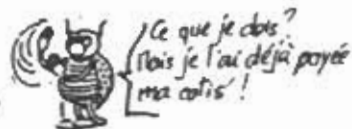 Ce que je dois?
Mais je l'ai déjà payée
ma cotis'!